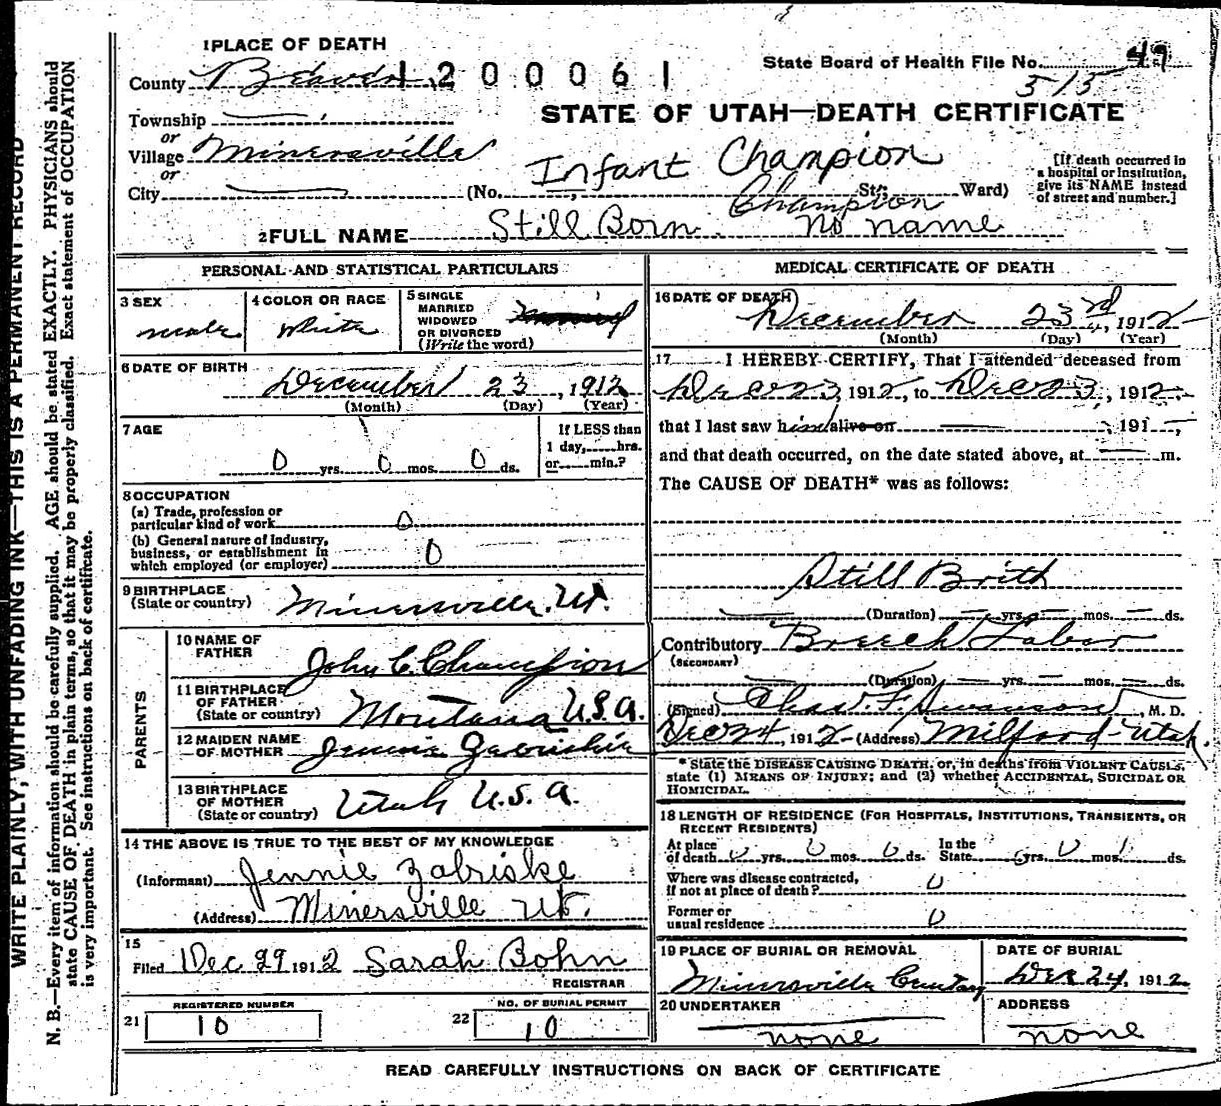 1 PLACE OF DEATH
County Beaver 1200061
State Board of Health File No. 49
515
STATE OF UTAH—DEATH CERTIFICATE
Township
or
Village Minersville
or
City (No. St. Ward)
Infant Champion
[If death occurred in
a hospital or institution,
give its NAME instead
of street and number.]
Champion
2 FULL NAME Still Born No name
PERSONAL AND STATISTICAL PARTICULARS
3 SEX
male
4 COLOR OR RACE
white
5 SINGLE
MARRIED
WIDOWED
OR DIVORCED
(Write the word)
6 DATE OF BIRTH
December 23, 1912
(Month) (Day) (Year)
7 AGE
0 yrs. 0 mos. 0 ds.
If LESS than
1 day, hrs.
or min.?
8 OCCUPATION
(a) Trade, profession or
particular kind of work 0
(b) General nature of industry,
business, or establishment in
which employed (or employer) 0
9 BIRTHPLACE
(State or country) Minersville. Ut.
PARENTS
10 NAME OF
FATHER John C. Champion
11 BIRTHPLACE
OF FATHER
(State or country) Montana U.S.A.
12 MAIDEN NAME
OF MOTHER Jennie
13 BIRTHPLACE
OF MOTHER
(State or country) Utah U.S.A.
14 THE ABOVE IS TRUE TO THE BEST OF MY KNOWLEDGE
(Informant) Jennie Zabriske
(Address) Minersville Ut.
15
Filed Dec 29 1912 Sarah Bohn
REGISTRAR
REGISTERED NUMBER
21 10
NO. OF BURIAL PERMIT
22 10
MEDICAL CERTIFICATE OF DEATH
16 DATE OF DEATH
December 23rd, 1912
(Month) (Day) (Year)
17 I HEREBY CERTIFY, That I attended deceased from
Dec 23, 1912, to Dec 23, 1912
that I last saw him alive on , 191
and that death occurred, on the date stated above, at m.
The CAUSE OF DEATH* was as follows:
Still Brith
(Duration) yrs. mos. ds.
Contributory Breech Labor
(SECONDARY)
(Duration) yrs. mos. ds.
(Signed) Chas. F. Swanson, M. D.
Dec 24, 1912 (Address) Milford Utah.
* State the DISEASE CAUSING DEATH, or, in deaths from VIOLENT CAUSES,
state (1) MEANS OF INJURY; and (2) whether ACCIDENTAL, SUICIDAL OR
HOMICIDAL.
18 LENGTH OF RESIDENCE (FOR HOSPITALS, INSTITUTIONS, TRANSIENTS, OR
RECENT RESIDENTS)
At place
of death 0 yrs. 0 mos. 0 ds. In the
State yrs. 0 mos. ds.
Where was disease contracted,
if not at place of death? 0
Former or
usual residence 0
19 PLACE OF BURIAL OR REMOVAL
Minersville Cemetary
DATE OF BURIAL
Dec 24, 1912
20 UNDERTAKER
none
ADDRESS
none
READ CAREFULLY INSTRUCTIONS ON BACK OF CERTIFICATE
WRITE PLAINLY, WITH UNFADING INK—THIS IS A PERMANENT RECORD
N. B.—Every item of information should be carefully supplied. AGE should be stated EXACTLY. PHYSICIANS should
state CAUSE OF DEATH in plain terms, so that it may be properly classified. Exact statement of OCCUPATION
is very important. See instructions on back of certificate.